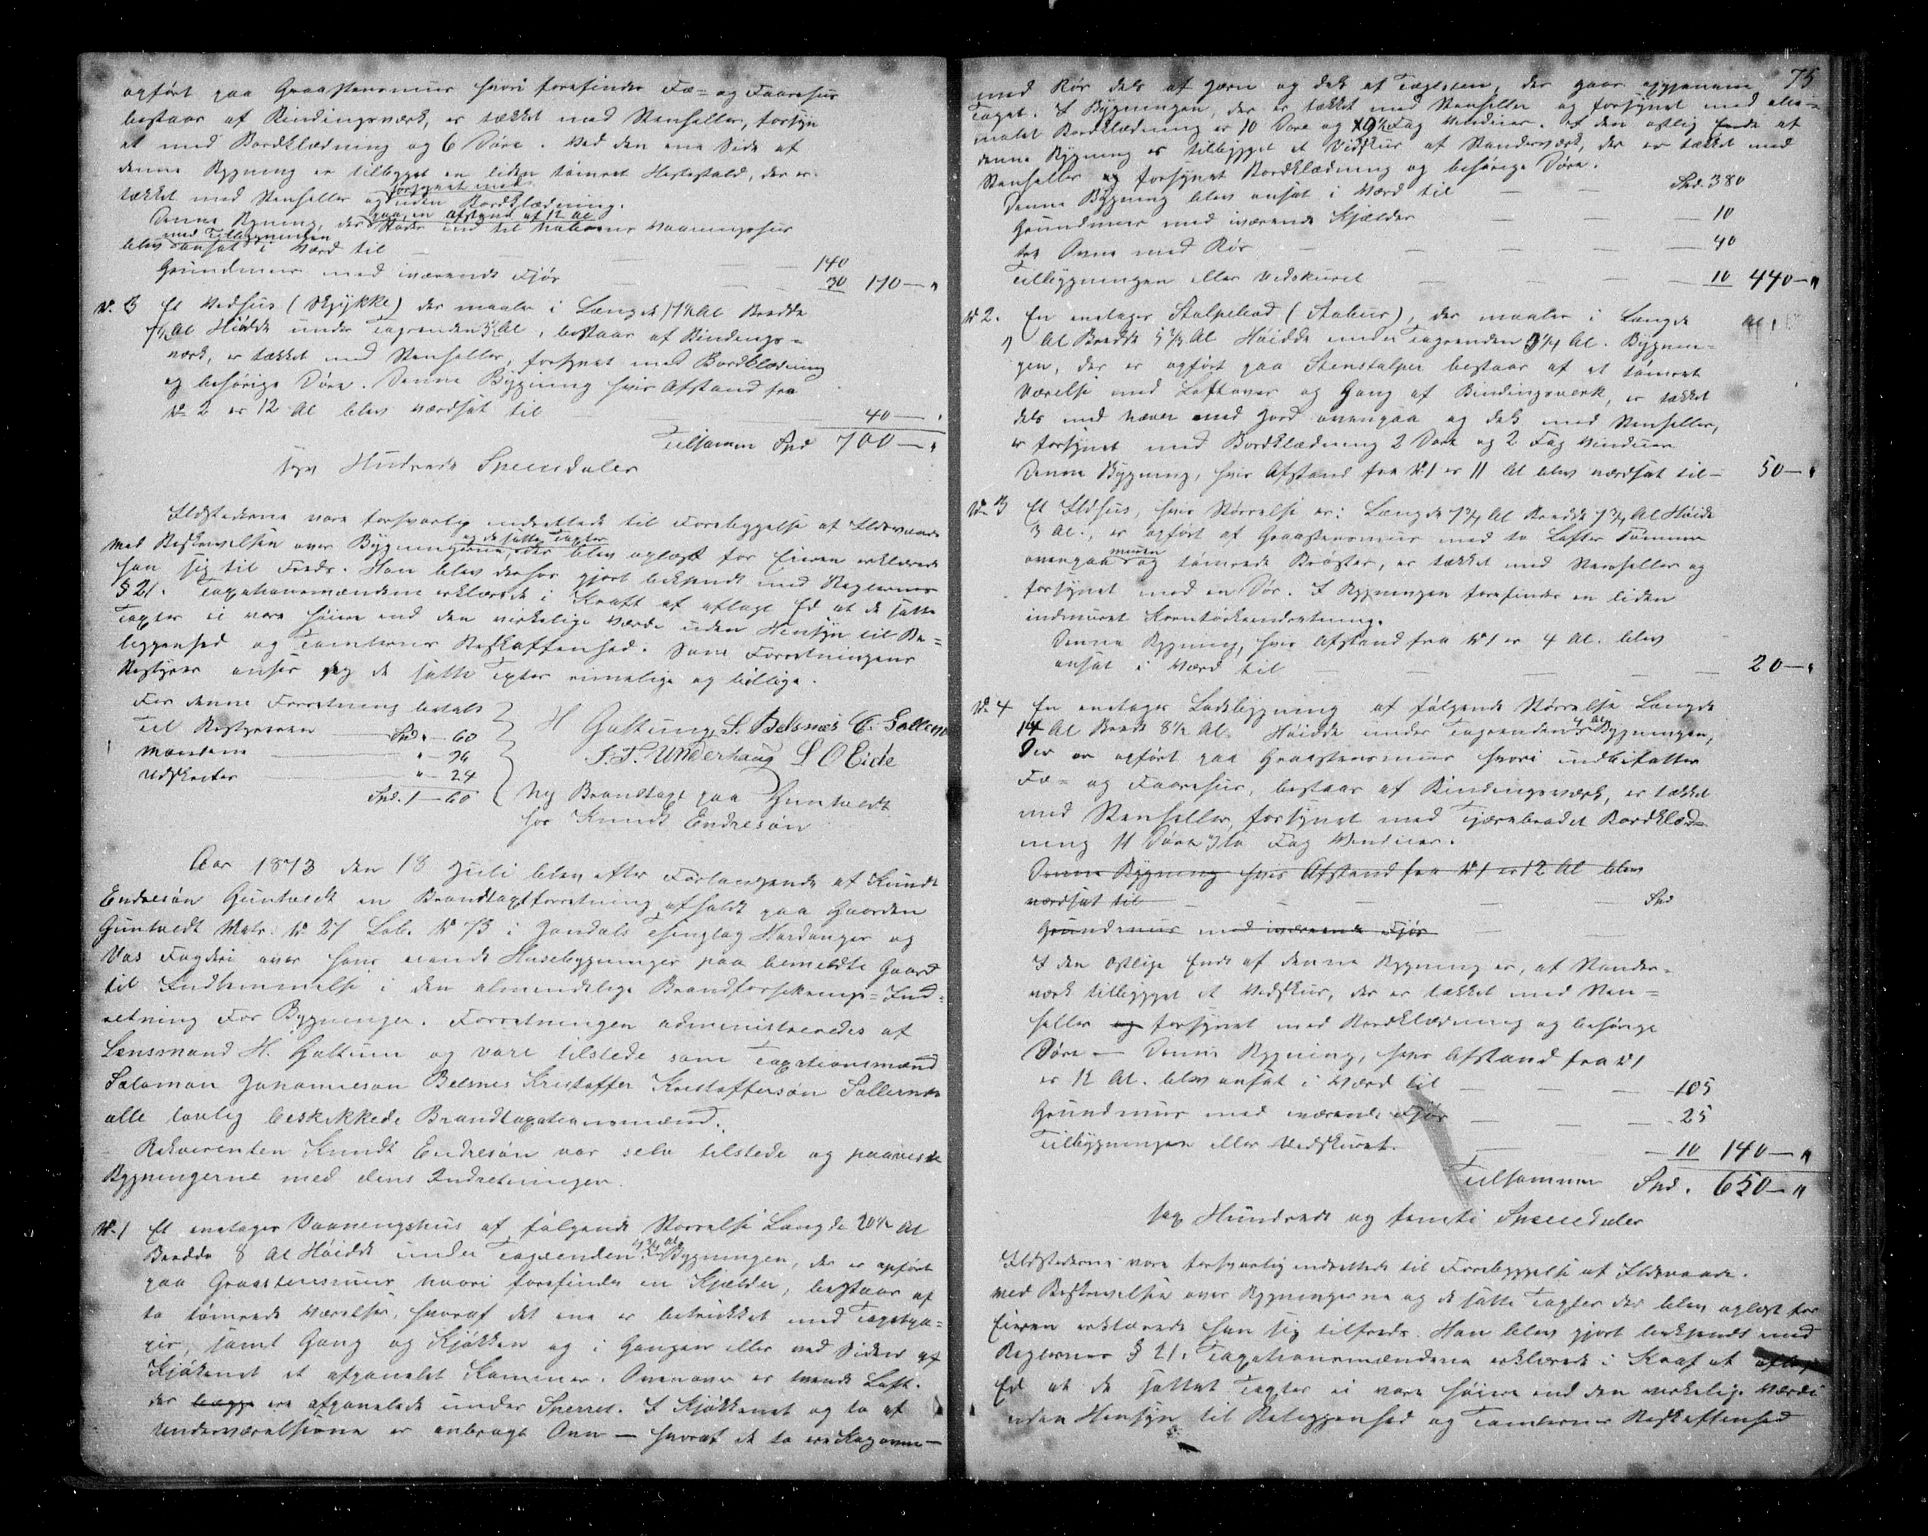 opført paa Graastensmur hvori forefindes Fæ- og Faarehus
bestaar af Bindingsværk, er tækket med Stenheller, forsyn
et med Bordklædning og 6 Døre. Ved den ene Side af
denne Bygning er tilbygget en liden tømret Hestestald, der er
tækket med Stenheller og forsynet med uden Bordklædning.
Denne Bygning, der staar paa en Afstand af 12 Al ind til Vaaningshus
med Tilbygninger blev ansat i Værd til — 140
Grundmur med iværende Fjøs — 30 170 — "
No. 3 Et Vedhus (Skykke) der maaler i Længde 17½ Al Bredde
7½ Al Høide under Tagrenden 3½ Al, bestaar af Bindings-
værk, er tækket med Stenheller, forsynet med Bordklædning
og behørige Døre. Denne Bygning hvis Afstand fra
No 2 er 12 Al blev værdsat til — 40 — "
Tilsammen Spd 700 — "
syv Hundrede Speciedaler
Ildstederne vare forsvarlig indrettede til Forebyggelse af Ildsvaade
Med Beskrivelsen over Bygningerne og de satte Taxter, der blev oplæst for Eieren erklærede
han sig tilfreds. Han blev derhos gjort bekjendt med Reglernes
§ 21. Taxationsmændene erklærede i Kraft af aflagt Ed at de satte
Taxter ei vare høiere end den virkelige Værdi uden Hensyn til Be-
liggenhed og Tomternes Beskaffenhed. Som Forretningens
Bestyrer anser jeg de satte Taxter rimelige og billige.
For denne Forretning betalt
Til Bestyreren — Spd. " — 60
Mændene — " — 96
Udskrifter — " — 24
Spd. 1 — 60
H Galtung S. Belsnes C. Sollesnes
J. T. Underhaug L O Eide
Ny Brandtaxt paa Guntvedt
for Knudt Endresøn
Aar 1873 den 18 Juli blev efter Forlangende af Knudt
Endresøn Guntvedt en Brandtaxtforretning afholdt paa Gaarden
Guntvedt Matr: No 27 Løb. No 73 i Jondals Thinglag Hardanger og
Vos Fogderi over hans eiende Husebygninger paa bemeldte Gaard
til Indlemmelse i den almindelige Brandforsikrings-Ind-
retning For Bygninger. Forretningen administreredes af
Lensmand H. Galtung og vare tilstede som Taxationsmænd
Salomon Johannesøn Belsnes Kristoffer Kristoffersøn Sollesnes
alle lovlig beskikkede Brandtaxationsmænd.
Rekvirenten Knudt Endresøn var selv tilstede og paaviste
Bygningerne med dens Indretninger.
No. 1 Et enetages Vaaningshus af følgende Størrelse Længde 20½ Al
Bredde 8 Al Høide under Tagrenden 4¾ Al Bygningen, der er opført
paa Graastensmur hvori forefindes en Kjælder, bestaar af
to tømrede Værelser, hvoraf det ene er betrukket med Tapetpa-
pir, samt Gang og Kjøkken og i Gangen eller ved Siden af
Kjøkenet et afpanelet Kammer. Ovenover er tvende Loft.
der begge ere afpanelede under Sperret. I Kjøkkenet og to af
Underværelserne er anbragt Ovn — hvoraf de to ere Kogovne —
75
med Rør dels af Jern og dels af Teglsten, der gaar igjennem
Taget. I Bygningen, der er tækket med Stenheller og forsynet med olie-
malet Bordklædning er 10 Døre og 9½ Fag Vinduer. Ved den østlig Ende af
denne Bygning er tilbygget et Vedskur af Standerværk, der er tækket med
Stenheller og forsynet Bordklædning og behørige Døre.
Denne Bygning blev ansat i Værd til Spd. 380
Grundmur med iværende Kjælder — 10
tre Ovne med Rør — 40
Tilbygningen eller Vedskuret — 10 440 — "
No 2. En enetages Stolpebod (Stabur), der maaler i Længde
7 Al Bredde 5¾ Al Høide under Tagrenden 3¼ Al. Bygnin-
gen, der er opført paa Stenstolper bestaar af et tømret
Værelse med Loft over og Gang af Bindingsverk, er tækket
dels med Næver med Jord ovenpaa og dels med Stenheller,
er forsynet med Bordklædning 2 Døre og 2 Fag Vinduer
Denne Bygning, hvis Afstand fra No 1 er 11 Al blev værdsat til — 50 — "
No. 3 Et Ildhus, hvis Størrelse er: Længde 7¾ Al Bredde 7¼ Al Høide
3 Al., er opført af Graastensmur med to Lofter Tømmer
ovenpaa muren og tømrede Brøster, er tækket med Stenheller og
forsynet med en Dør. I Bygningen forefindes en liden
indmuret Korntørkeindretning.
Denne Bygning, hvis Afstand fra No 1 er 4 Al. blev
ansat i Værd til — 20 — "
No. 4 En enetages Ladebygning af følgende Størrelse Længde
14 Al Bredde 8½ Al. Høide under Tagrenden 4 Al Bygningen,
der er opført paa Graastensmur hvori indbefattes
Fæ- og Faarehus, bestaar af Bindingsværk, er tækket
med Stenheller, forsynet med Tjærebredet Bordklæd-
ning 11 Døre og to Fag Vinduer.
Denne Bygning hvis Afstand fra No 1 er 12 Al blev
værdsat til — Spd
Grundmur med iværende Fjøs
I den østlige Ende af denne Bygning er, af Stander-
værk tilbygget et Vedskur, der er tækket med Sten-
heller og forsynet med Bordklædning og behørige
Døre — Denne Bygning, hvis Afstand fra No 1
er 12 Al. blev ansat i Værd til — 105
Grundmur med iværende Fjøs — 25
Tilbygningen eller Vedskuret. — 10 140 — "
Tilsammen Spd. 650 — "
sex Hundrede og femti Speciedaler
Ildstederne vare forsvarlig indrettede til Forebyggelse af Ildsvaade.
Med Beskrivelsen over Bygningerne og de satte Taxter der blev oplæst for
Eieren erklærede han sig tilfreds. Han blev gjort bekjendt med
Reglernes § 21. Taxationsmændene erklærede i Kraf af aflagt
Ed at de sattet Taxter ei vare høiere end den virkelige Værdi
uden Hensyn til Beliggenhed og Tomternes Beskaffenhed